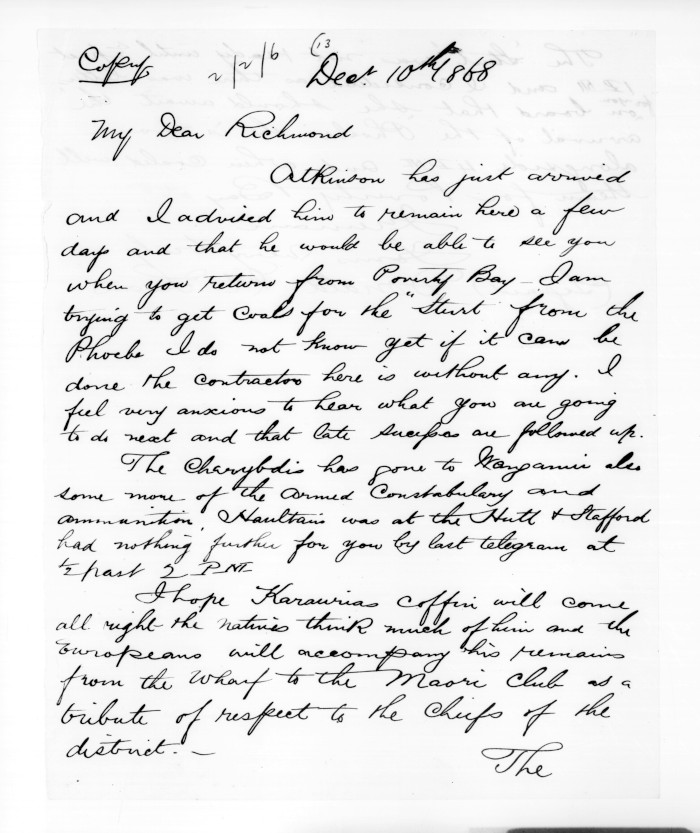 Copy 2/2/6 (13 Dect. 10th/1868
My Dear Richmond
Atkinson has just arrived
and I advised him to remain here a few
days and that he would be able to see you
when you return from Poverty Bay - I am
trying to get Coals for the "Sturt" from the
Phoebe I do not know yet if it can be
done the contractor here is without any. I
feel very anxious to hear what you are going
to do next and that late sucesses are followed up.
The Charybdis has gone to Wanganui also
some more of the Armed Constabulary and
ammunition, Haultain was at the Hutt & Stafford
had nothing further for you by last telegram at
1/2 past 2 PM
I hope Karaurias coffin will come
all right the natives think much of him and the
Europeans will accompany his remains
from the Wharf to the Maori Club as a
tribute of respect to the Chiefs of the
district. -
The